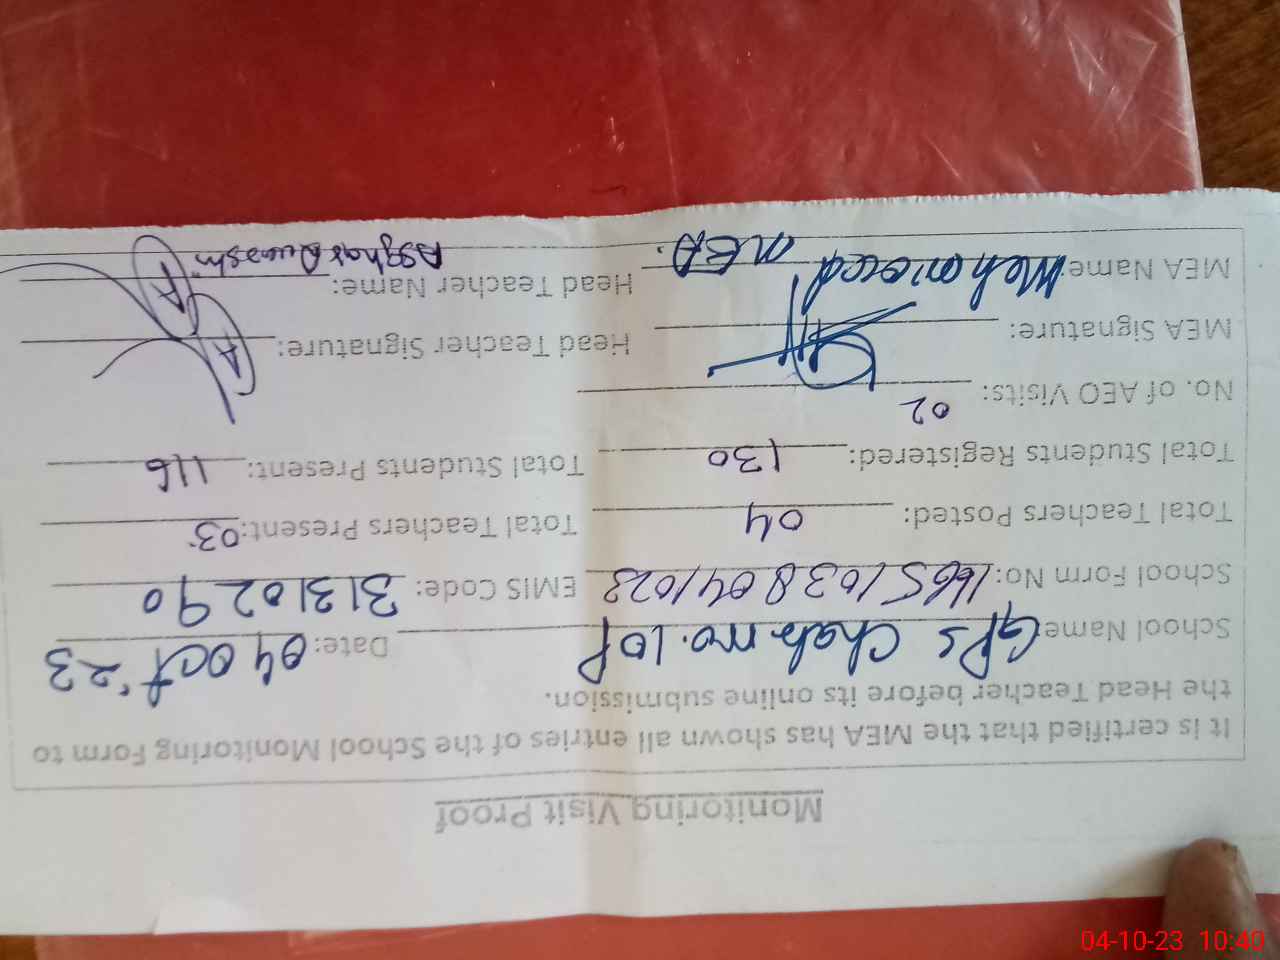 Monitoring Visit Proof
It is certified that the MEA has shown all entries of the School Monitoring Form to
the Head Teacher before its online submission.
School Name GPS Chak no. 10P Date: 04 Oct 23
School Form No: 16651038041023 EMIS Code: 31310290
Total Teachers Posted: 04 Total Teachers Present: 03
Total Students Registered: 130 Total Students Present: 116
No. of AEO Visits: 02
MEA Signature: Head Teacher Signature:
MEA Name MEA. Head Teacher Name: Asghar
04-10-23 10:40